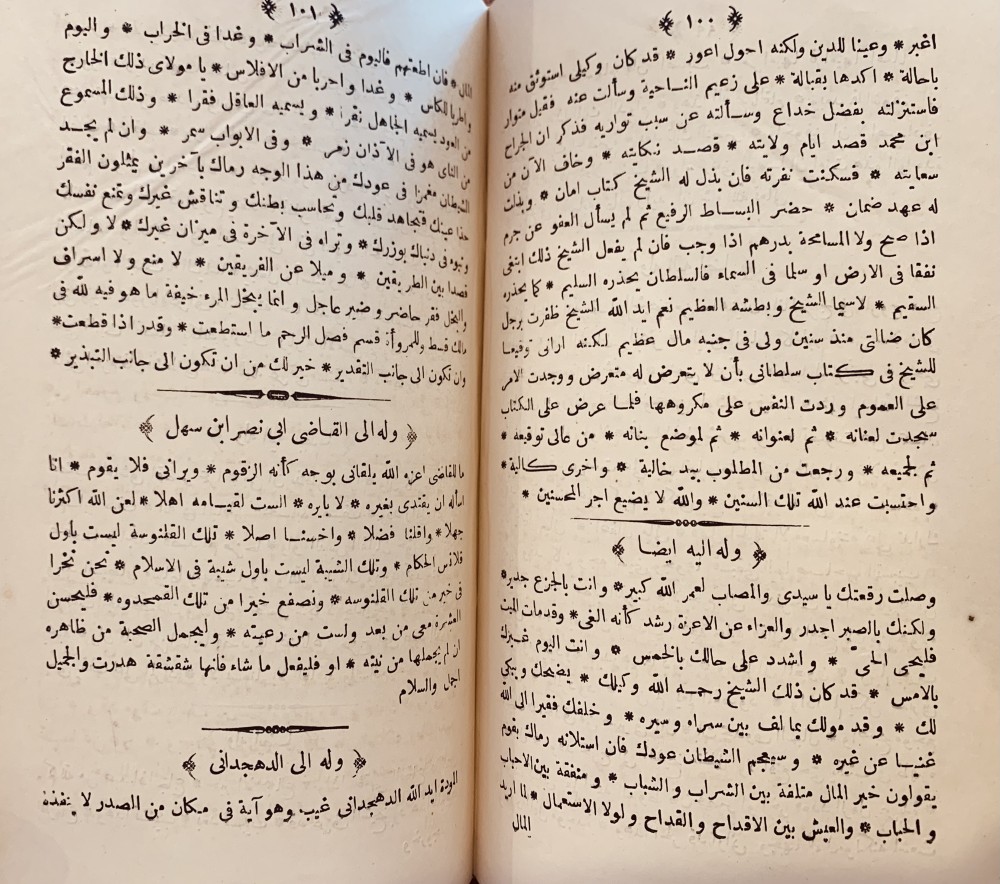 ﴿ ١٠٠ ﴾
اغبر * وعينا للدين ولكنه احول اعور * قد كان وكيلى استوثق منه
باحالة * اكدها بقبالة * على زعيم الناحية وسألت عنه فقيل متوار
فاستنزلته بفضل خداع وسألته عن سبب تواريه فذكر ان الجراح
ابن محمد قصد ايام ولايته * قصد نكايته * وخاف الآن من
سعايته * فسكنت نفرته فان بذل له الشيخ كتاب امان * وبذلت
له عهد ضمان * حضر البساط الرفيع ثم لم يسأل العفو عن جرم
اذا صح ولا المسامحة بدرهم اذا وجب فان لم يفعل الشيخ ذلك ابتغى
نفقا فى الارض او سلما فى السماء فالسلطان يحذره السليم * كما يحذره
السقيم * لاسيما الشيخ وبطشه العظيم نعم ايد الله الشيخ ظفرت برجل
كان ضالتى منذ سنين ولى فى جنبه مال عظيم لكنه ارانى توقيعا
للشيخ فى كتاب سلطانى بأن لا يتعرض له متعرض ووجدت الامر
على العموم وردت النفس على مكروهها فلما عرض على الكتاب
سجدت لعنانه * ثم لعنوانه * ثم لموضع بنانه * من عالى توقيعه *
ثم لجميعه * ورجعت من المطلوب بيد خالية * واخرى كالية *
واحتسبت عند الله تلك السنين * والله لا يضيع اجر المحسنين *
﴿ وله اليه ايضا ﴾
وصلت رقعتك يا سيدى والمصاب لعمر الله كبير * وانت بالجزع جدير *
ولكنك بالصبر اجدر والعزاء عن الاعزة رشد كأنه الغى * وقدمات الميت
فليحى الحى * واشدد على حالك بالخمس * وانت اليوم غيرك
بالامس * قد كان ذلك الشيخ رحمه الله وكيلك * يضحك ويبكى
لك * وقد مولك بما لف بين سراه وسيره * وخلفك فقيرا الى الله
غنيا عن غيره * وسيعجم الشيطان عودك فان استلانه رماك بقوم
يقولون خير المال متلفة بين الشراب والشباب * ومنفقة بين الاحباب
والحباب * والعيش بين الاقداح والقداح ولولا الاستعمال * لما اريد
المال
﴿ ١٠١ ﴾
المال * فان اطعتهم فاليوم فى الشراب * وغدا فى الخراب * واليوم
واطربا للكأس * وغدا واحربا من الافلاس * يا مولاى ذلك الخارج
من العود يسميه الجاهل نقرا * ويسميه العاقل فقرا * وذلك المسموع
من الناى هو فى الآذان زمر * وفى الابواب سمر * وان لم يجد
الشيطان مغمزا فى عودك من هذا الوجه رماك بآخرين يمثلون الفقر
حذا عينك فتجاهد قلبك وتحاسب بطنك وتناقش غيرك وتمنع نفسك
وتبوء فى دنياك بوزرك * وتراه فى الآخرة فى ميزان غيرك * لا ولكن
قصدا بين الطريقين * وميلا عن الفريقين * لا منع ولا اسراف
والبخل فقر حاضر وضير عاجل وانما يبخل المرء خيفة ما هو فيه لله فى
مالك قسط وللمروأة قسم فصل الرحم ما استطعت * وقدر اذا قطعت *
وان تكون الى جانب التقدير * خير لك من ان تكون الى جانب التبذير *
﴿ وله الى القاضى ابى نصر ابن سهل ﴾
ما للقاضى اعزه الله يلقانى بوجه كأنه الزقوم * ويرانى فلا يقوم * انا
اسأله ان يقتدى بغيره * لا بايره * الست لقيامه اهلا * لعن الله اكثرنا
جهلا * واقلنا فضلا * واخسنا اصلا * تلك القلنوسة ليست بأول
قلانس الحكام * وتلك الشيبة ليست باول شيبة فى الاسلام * نحن نخرا
فى خير من تلك القلنوسه * ونصفع خيرا من تلك القمحدوه * فليحسن
العشرة معى من بعد ولست من رعيته * وليجمل الصحبة من ظاهره
ان لم يجملها من نيته * او فليفعل ما شاء فأنها شقشقة هدرت والجميل
اجمل والسلام
﴿ وله الى الدهجدانى ﴾
المودة ايد الله الدهجدانى غيب وهو آية فى مكان من الصدر لا ينفذه